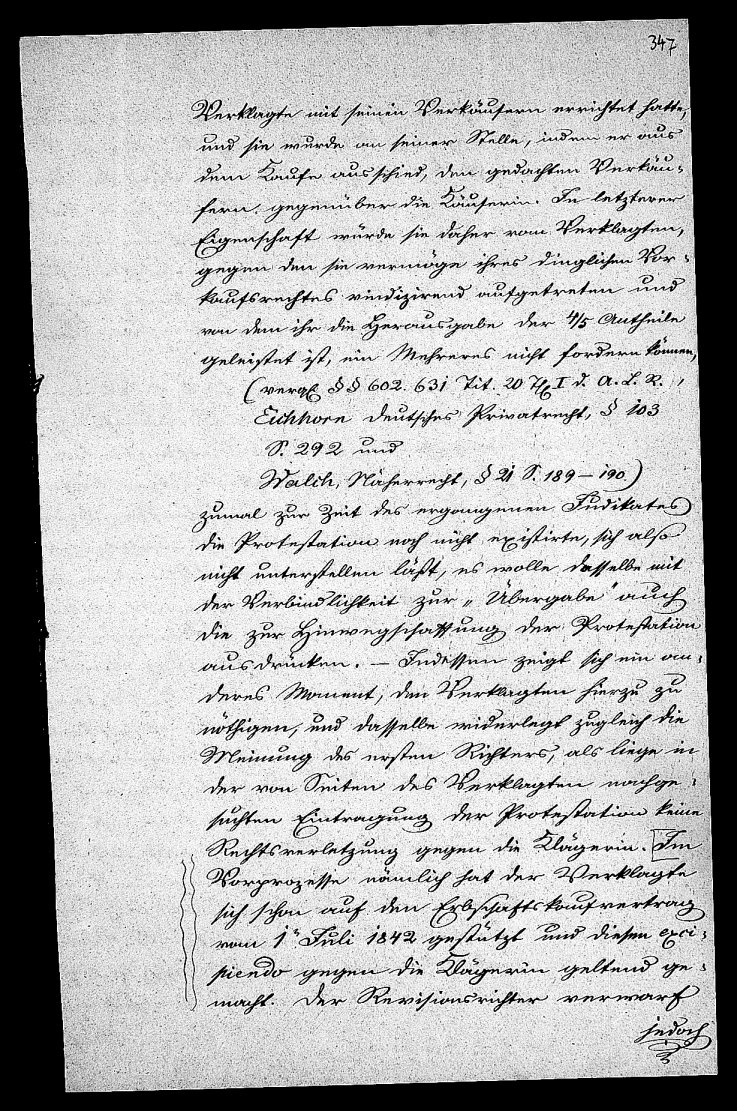 347
Verklagte mit seinen Verkäufern errichtet hatte,
und sie wurde an seiner Stelle, indem er aus
dem Kaufe ausschied, den gedachten Verkäu-
fern gegenüber die Käuferin. In letzterer
Eigenschaft würde sie daher vom Verklagten,
gegen den sie vermöge ihres dinglichen Vor-
kaufsrechtes vindizirend aufgetreten und
von dem ihr die Herausgabe der 4/5 Antheile
geleistet ist, ein Mehreres nicht fordern können,
(vergl. §§ 602. 631 Tit. 20 Th. I d. A. L. R.,
Eichhorn deutsches Privatrecht, § 103
S. 292 und
Walch, Näherrecht, § 21 S. 189–190)
zumal zur Zeit des ergangenen Judikates
die Protestation noch nicht existirte, sich also
nicht unterstellen läßt, es wolle dasselbe mit
der Verbindlichkeit zur „Übergabe" auch
die zur Hinwegschaffung der Protestation
ausdrücken. — Indessen zeigt sich ein an-
deres Moment, den Verklagten hierzu zu
nöthigen, und dasselbe widerlegt zugleich die
Meinung des ersten Richters, als liege in
der von Seiten des Verklagten nachge-
suchten Eintragung der Protestation keine
Rechtsverletzung gegen die Klägerin. [Im
Vorprozesse nämlich hat der Verklagte
sich schon auf den Erbschaftskaufvertrag
vom 1n Juli 1842 gestützt und diesen exci-
piendo gegen die Klägerin geltend ge-
macht. Der Revisionsrichter verwarf
jedoch